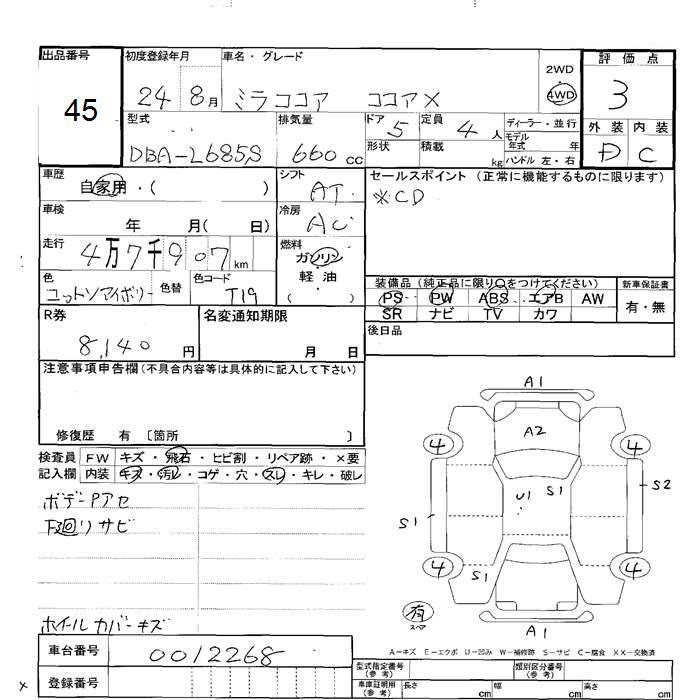 出品番号 初度登録年月 車名・グレード 評価点
45
24 8月 ミラココア ココアX
2WD
4WD
3
型式 排気量 ドア 定員 ディーラー・並行
DBA-L685S 660cc 5 4人
モデル年式 年
形状 積載 kg ハンドル 左・右
外装 内装
D C
車歴 シフト セールスポイント (正常に機能するものに限ります)
自家用・( ) AT ※CD
車検 冷房
年 月( 日) AC
走行 燃料
4万7千907km ガソリン
軽油
( )
色 色替 色コード
コットンアイボリー T19
装備品(純正品に限り○をつけてください) 新車保証書
PS PW ABS エアB AW 有・無
SR ナビ TV カワ
R券 名変通知期限 後日品
8,140円 月 日
注意事項申告欄(不具合内容等は具体的に記入して下さい)
修復歴 有 〔箇所 〕
検査員 FW キズ・飛石・ヒビ割・リペア跡・×要
記入欄 内装 キズ・汚レ・コゲ・穴・スレ・キレ・破レ
ボデーPアセ
下廻リサビ
ホイールカバーキズ
A1
4 A2 4
U1 S1 S2
S1
4 S1 4
有
スペア
A1
A-キズ E-エクボ U-凹み W-補修跡 S-サビ C-腐食 XX-交換済
車台番号 0012268
登録番号
型式指定番号(参考) 類別区分番号(参考)
車庫証明用(参考) 長さ cm 幅 cm 高さ cm
×